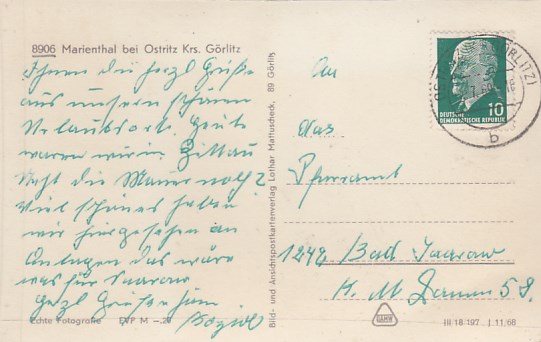 8906 Marienthal bei Ostritz Krs. Görlitz
Ihnen die herzl Grüße
aus unserm schönen
Urlaubsort. Heute
waren wir in Zittau
steht die Mauer noch?
Viel schönes haben
wir hier gesehen an
Anlagen das wäre
was für Saarow
Herzl Grüße
Echte Fotografie EVP M -.20
Bild- und Ansichtspostkartenverlag Lothar Mattuscheck, 89 Görlitz
An
das
Pfarramt
1242 Bad Saarow
K. M. Damm 58.
DEUTSCHE
DEMOKRATISCHE REPUBLIK
10
b
III-18-197 J 11/68